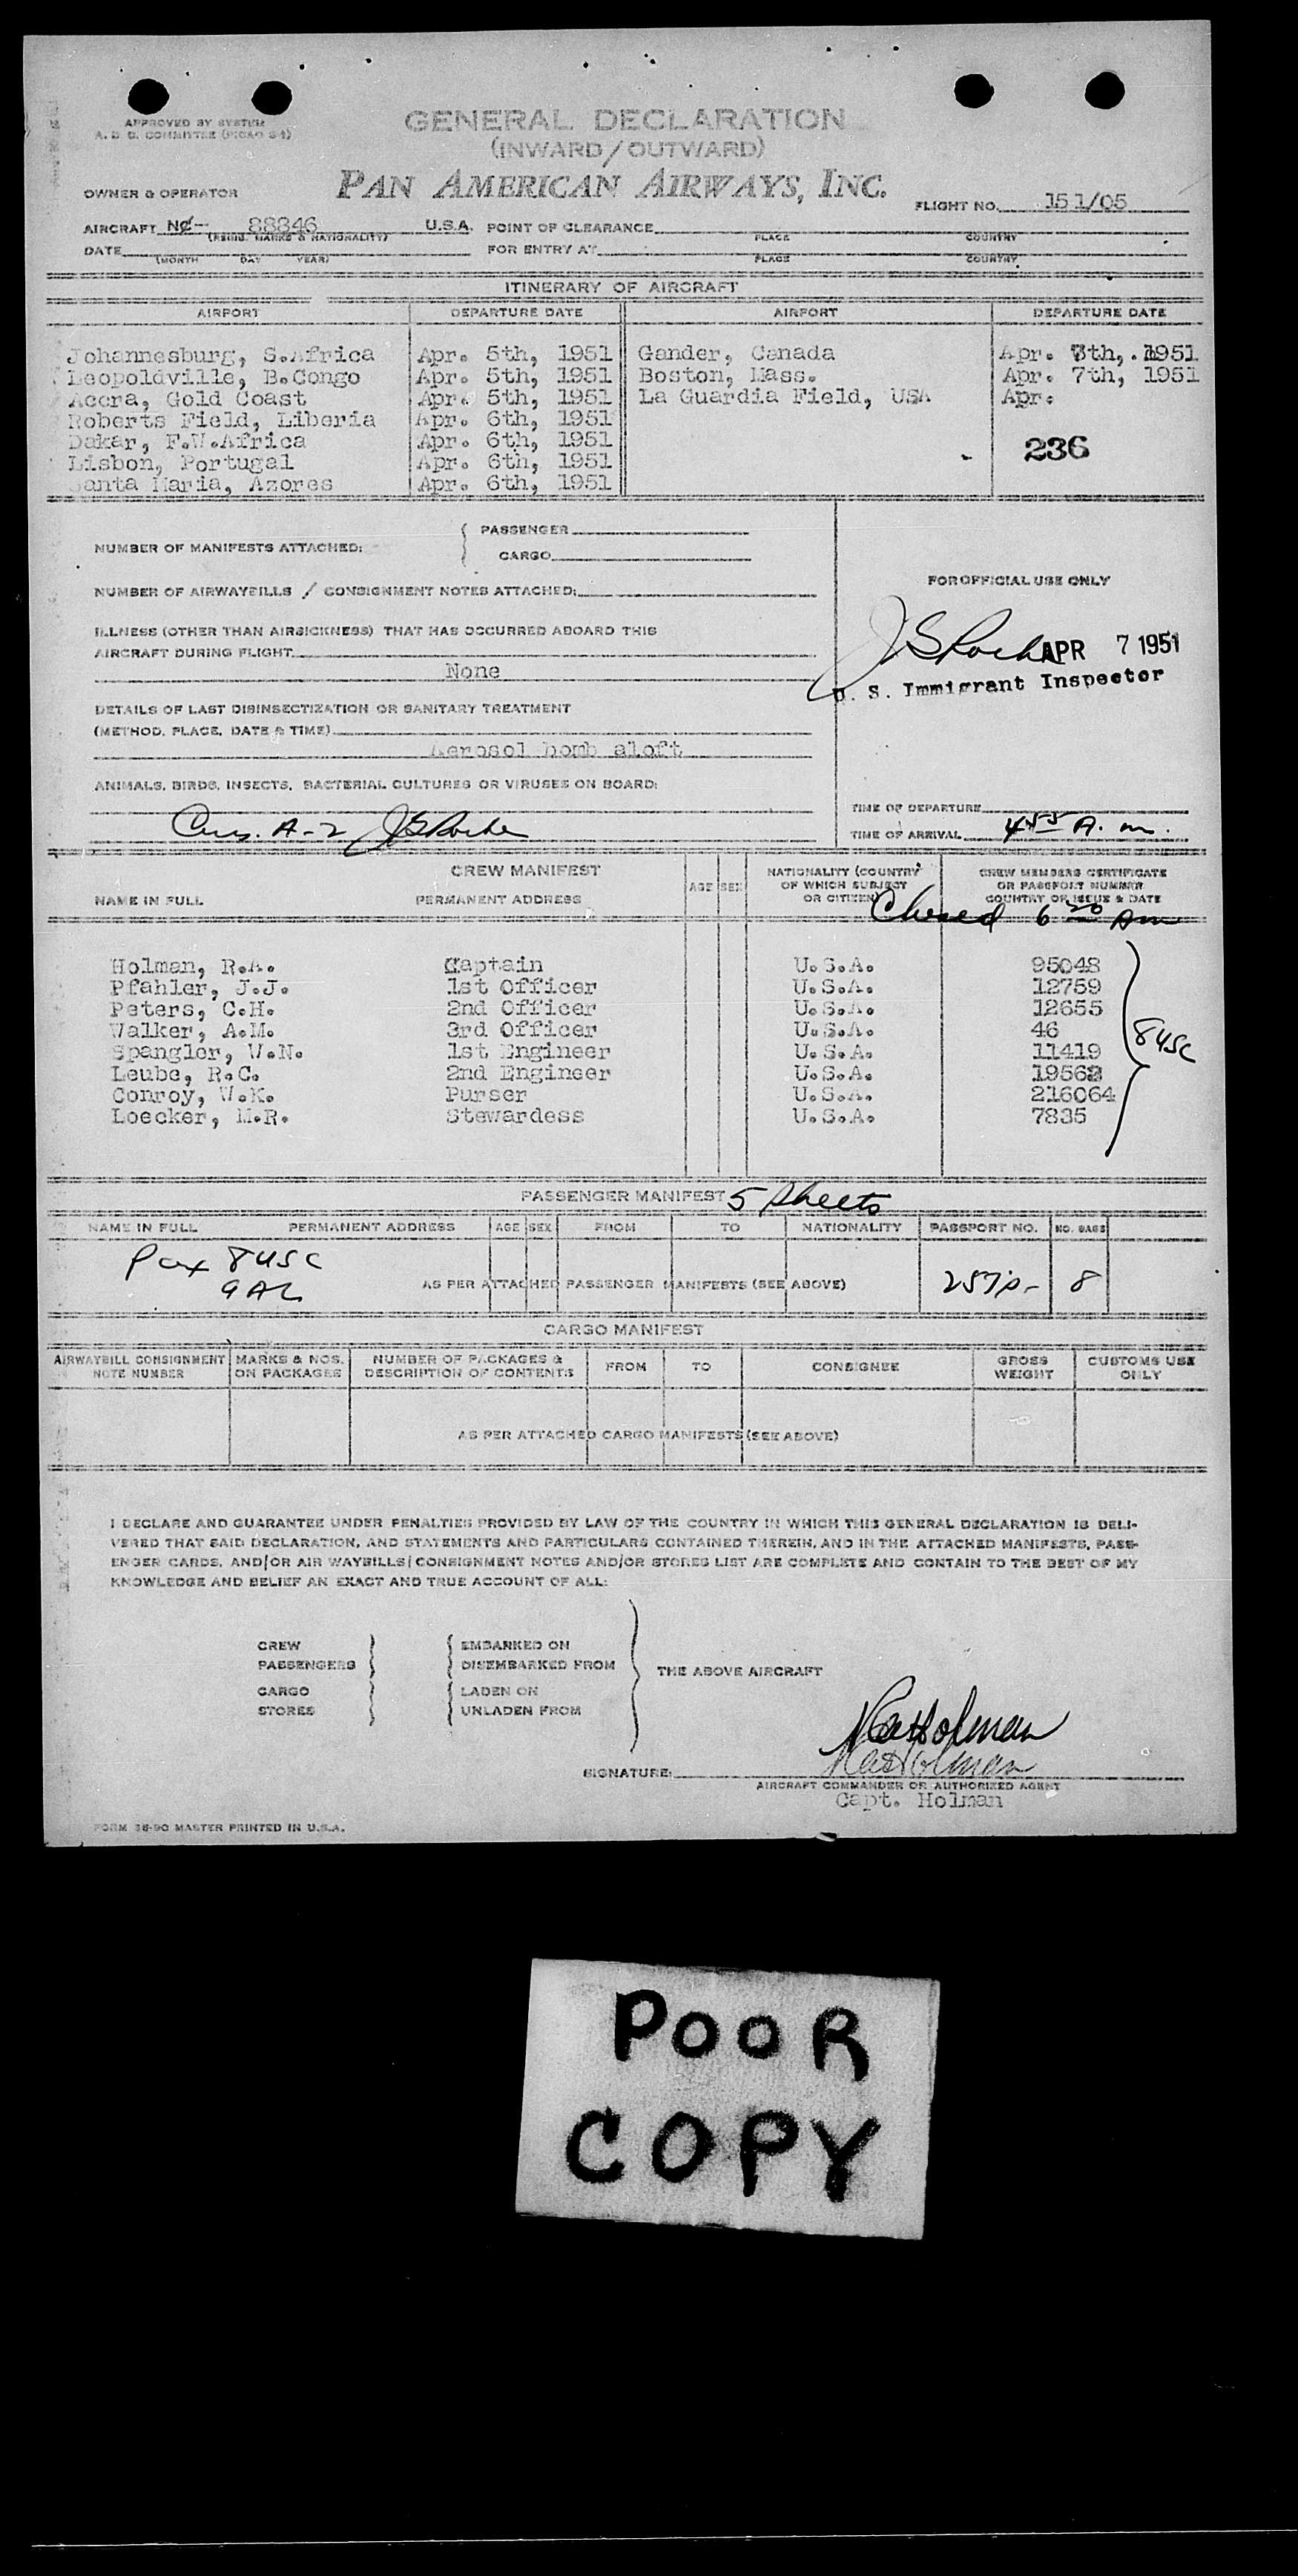 APPROVED BY SYSTEM
A. D. G. COMMITTEE (PICAO 8-1)
GENERAL DECLARATION
(INWARD/OUTWARD)
OWNER & OPERATOR
PAN AMERICAN AIRWAYS, INC.
FLIGHT NO. 151/05
AIRCRAFT NC- 88846 U.S.A. POINT OF CLEARANCE
(REGIS. MARKS & NATIONALITY) PLACE COUNTRY
DATE FOR ENTRY AT
(MONTH DAY YEAR) PLACE COUNTRY
ITINERARY OF AIRCRAFT
AIRPORT DEPARTURE DATE AIRPORT DEPARTURE DATE
Johannesburg, S.Africa Apr. 5th, 1951 Gander, Canada Apr. 7th, 1951
Leopoldville, B.Congo Apr. 5th, 1951 Boston, Mass. Apr. 7th, 1951
Accra, Gold Coast Apr. 5th, 1951 La Guardia Field, USA Apr.
Roberts Field, Liberia Apr. 6th, 1951
Dakar, F.W.Africa Apr. 6th, 1951 236
Lisbon, Portugal Apr. 6th, 1951
Santa Maria, Azores Apr. 6th, 1951
NUMBER OF MANIFESTS ATTACHED: PASSENGER
CARGO
FOR OFFICIAL USE ONLY
NUMBER OF AIRWAYBILLS / CONSIGNMENT NOTES ATTACHED:
ILLNESS (OTHER THAN AIRSICKNESS) THAT HAS OCCURRED ABOARD THIS
AIRCRAFT DURING FLIGHT
None
JS Roche APR 7 1951
U. S. Immigrant Inspector
DETAILS OF LAST DISINSECTIZATION OR SANITARY TREATMENT
(METHOD, PLACE, DATE & TIME)
Aerosol bomb aloft
ANIMALS, BIRDS, INSECTS, BACTERIAL CULTURES OR VIRUSES ON BOARD:
TIME OF DEPARTURE
A-2 JS Roche
TIME OF ARRIVAL 4 55 A. m.
CREW MANIFEST
NAME IN FULL PERMANENT ADDRESS AGE SEX NATIONALITY (COUNTRY OF WHICH SUBJECT OR CITIZEN) CREW MEMBERS CERTIFICATE OR PASSPORT NUMBER COUNTRY OF ISSUE & DATE
6 20 Am
Holman, R.A. Captain U.S.A. 95048
Pfahler, J.J. 1st Officer U.S.A. 12759
Peters, C.H. 2nd Officer U.S.A. 12655
Walker, A.M. 3rd Officer U.S.A. 46
Spangler, W.N. 1st Engineer U.S.A. 11419
8 USC
Leube, R.C. 2nd Engineer U.S.A. 19562
Conroy, W.K. Purser U.S.A. 216064
Loecker, M.R. Stewardess U.S.A. 7835
PASSENGER MANIFEST 5 Sheets
NAME IN FULL PERMANENT ADDRESS AGE SEX FROM TO NATIONALITY PASSPORT NO. NO. BAGS
Pax 8 USC
9 AL AS PER ATTACHED PASSENGER MANIFESTS (SEE ABOVE) 8
CARGO MANIFEST
AIRWAYBILL CONSIGNMENT NOTE NUMBER MARKS & NOS. ON PACKAGES NUMBER OF PACKAGES & DESCRIPTION OF CONTENTS FROM TO CONSIGNEE GROSS WEIGHT CUSTOMS USE ONLY
AS PER ATTACHED CARGO MANIFESTS (SEE ABOVE)
I DECLARE AND GUARANTEE UNDER PENALTIES PROVIDED BY LAW OF THE COUNTRY IN WHICH THIS GENERAL DECLARATION IS DELI-
VERED THAT SAID DECLARATION, AND STATEMENTS AND PARTICULARS CONTAINED THEREIN, AND IN THE ATTACHED MANIFESTS, PASS-
ENGER CARDS, AND/OR AIR WAYBILLS/CONSIGNMENT NOTES AND/OR STORES LIST ARE COMPLETE AND CONTAIN TO THE BEST OF MY
KNOWLEDGE AND BELIEF AN EXACT AND TRUE ACCOUNT OF ALL:
CREW EMBARKED ON
PASSENGERS DISEMBARKED FROM THE ABOVE AIRCRAFT
CARGO LADEN ON
STORES UNLADEN FROM
RA Holman
RA Holman
SIGNATURE:
AIRCRAFT COMMANDER OR AUTHORIZED AGENT
Capt. Holman
FORM 38-90 MASTER PRINTED IN U.S.A.
POOR
COPY